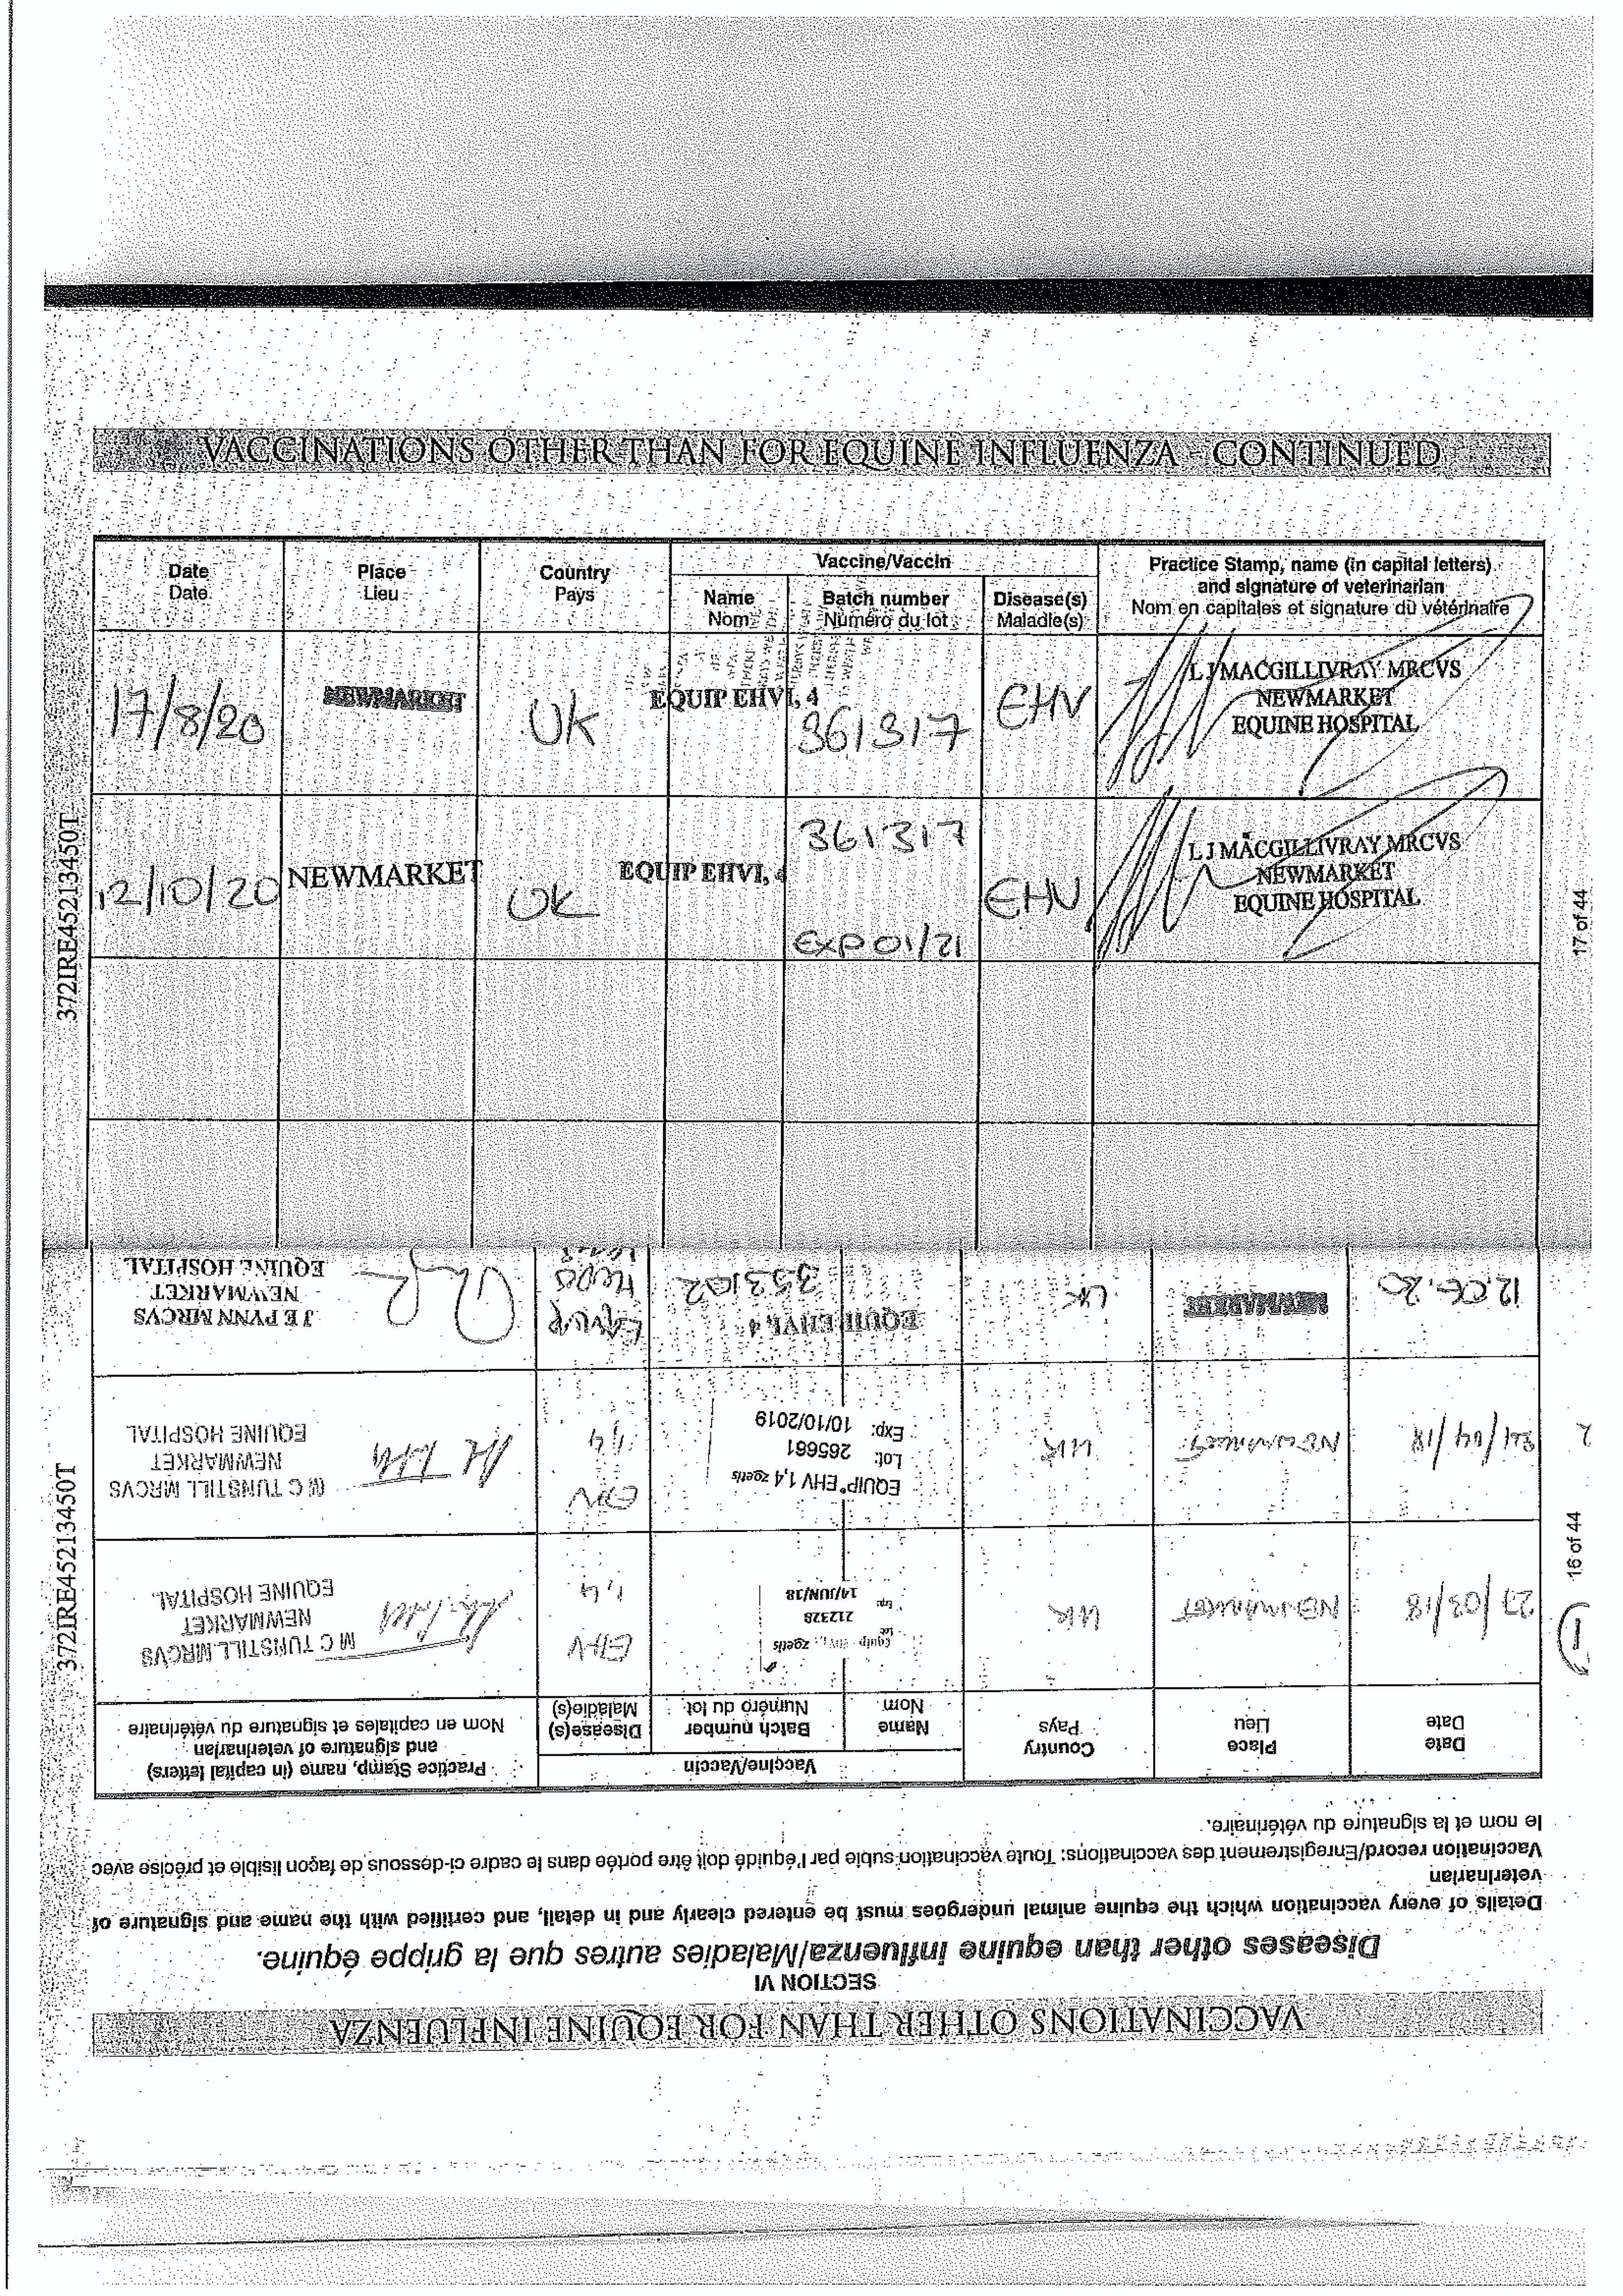 VACCINATIONS OTHER THAN FOR EQUINE INFLUENZA - CONTINUED
372IRE45213450T
17 of 44
Date
Date
Place
Lieu
Country
Pays
Vaccine/Vaccin
Name
Nom
Batch number
Numéro du lot
Disease(s)
Maladie(s)
Practice Stamp, name (in capital letters)
and signature of veterinarian
Nom en capitales et signature du vétérinaire
17/8/20
NEWMARKET
UK
EQUIP EHV1, 4
361317
EHV
L J MACGILLIVRAY MRCVS
NEWMARKET
EQUINE HOSPITAL
12/10/20
NEWMARKET
UK
EQUIP EHV1, 4
361317
Exp 01/21
EHV
L J MACGILLIVRAY MRCVS
NEWMARKET
EQUINE HOSPITAL
VACCINATIONS OTHER THAN FOR EQUINE INFLUENZA
SECTION VI
Diseases other than equine influenza/Maladies autres que la grippe équine.
Details of every vaccination which the equine animal undergoes must be entered clearly and in detail, and certified with the name and signature of
veterinarian
Vaccination record/Enregistrement des vaccinations: Toute vaccination subie par l'équidé doit être portée dans le cadre ci-dessous de façon lisible et précise avec
le nom et la signature du vétérinaire.
372IRE45213450T
16 of 44
Date
Date
Place
Lieu
Country
Pays
Vaccine/Vaccin
Name
Nom
Batch number
Numéro du lot
Disease(s)
Maladie(s)
Practice Stamp, name (in capital letters)
and signature of veterinarian
Nom en capitales et signature du vétérinaire
1
27/03/18
NEWMARKET
UK
Equip EHV zoetis
Lot:
212328
Exp:
14/JUN/18
EHV
1,4
M C TUNSTILL MRCVS
NEWMARKET
EQUINE HOSPITAL
2
24/04/18
NEWMARKET
UK
EQUIP® EHV 1,4 zoetis
Lot: 265661
Exp: 10/10/2019
EHV
1,4
M C TUNSTILL MRCVS
NEWMARKET
EQUINE HOSPITAL
12.06.20
NEWMARKET
UK
EQUIP EHV1, 4
353102
Equip
J E PYNN MRCVS
NEWMARKET
EQUINE HOSPITAL